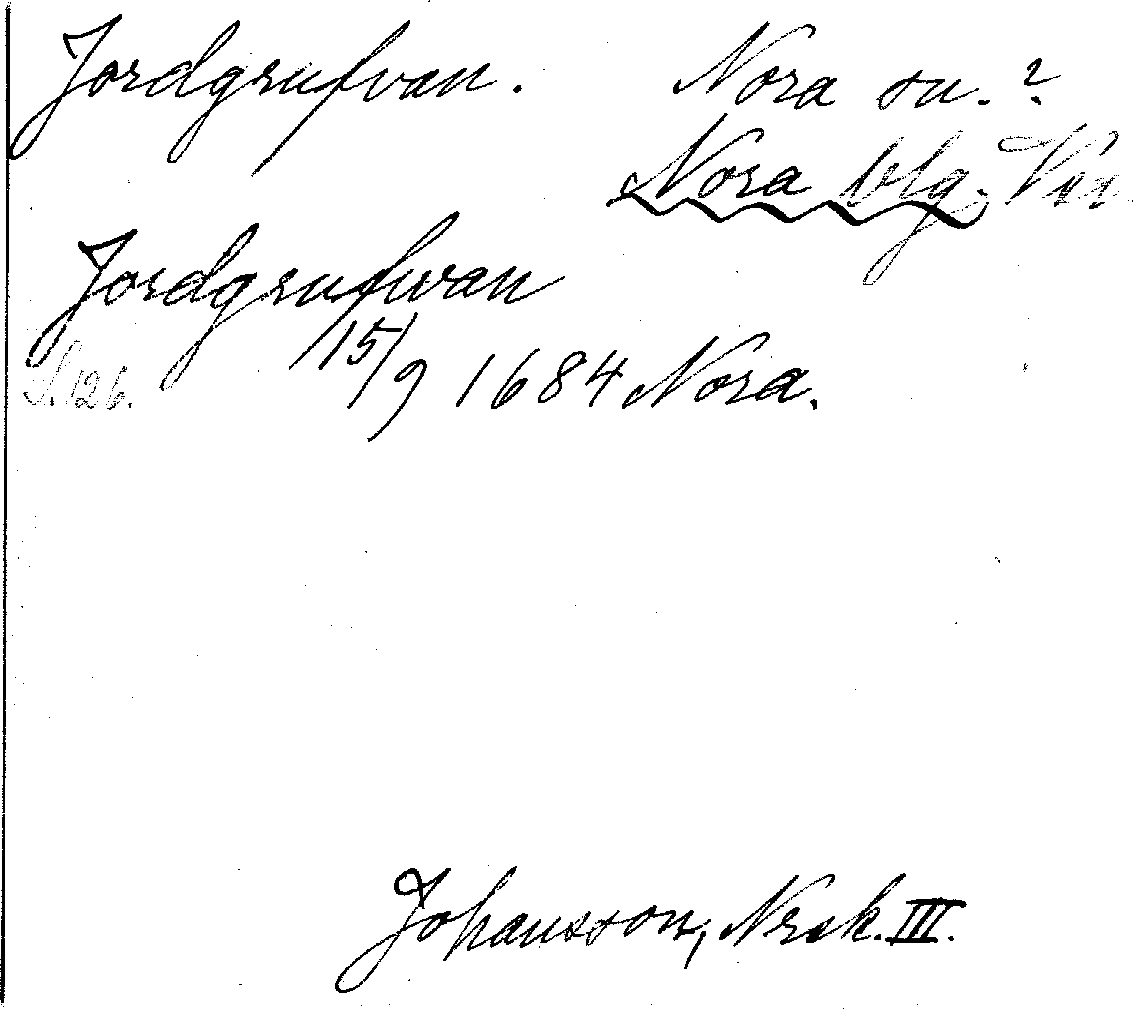 Jordgrufvan. Nora sn.?
Nora blg.
Jordgrufwan
S. 126. 15/9 1684 Nora.
Johansson, Nrsk. III.